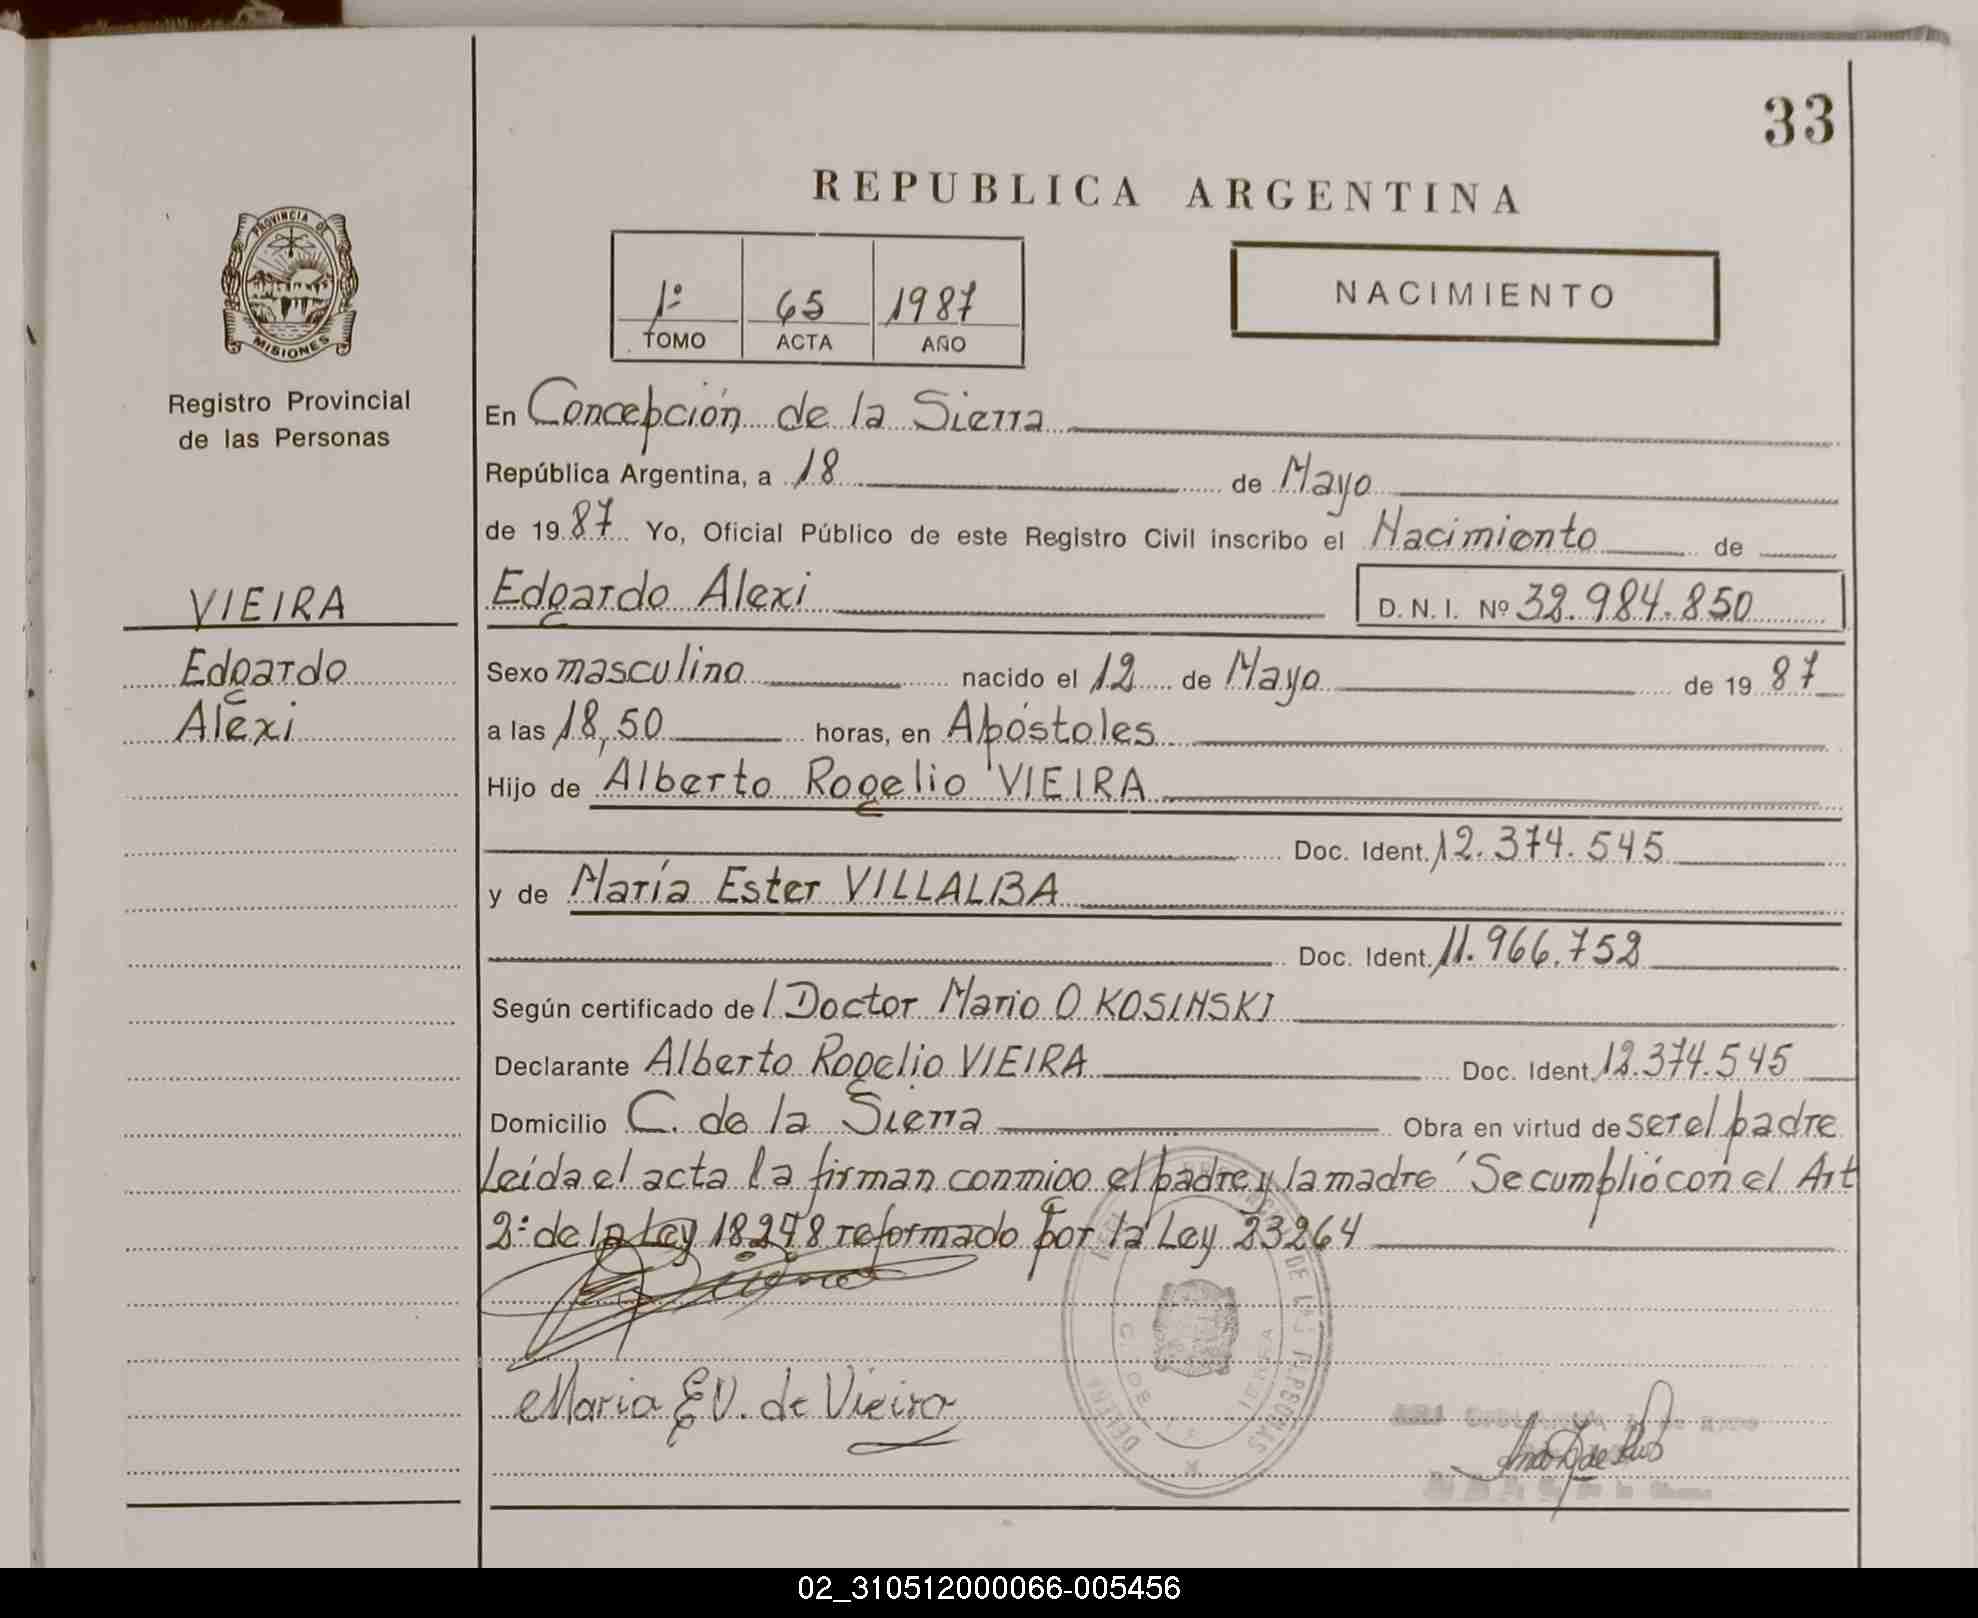 33
REPUBLICA ARGENTINA
PROVINCIA DE
MISIONES
Registro Provincial
de las Personas
1º 65 1987
TOMO ACTA AÑO
NACIMIENTO
En Concepción de la Sierra
República Argentina, a 18 de Mayo
de 1987 Yo, Oficial Público de este Registro Civil inscribo el Nacimiento de
VIEIRA
Edgardo
Alexi
Edgardo Alexi D.N.I. Nº 32.984.850
Sexo masculino nacido el 12 de Mayo de 1987
a las 18,50 horas, en Apóstoles
Hijo de Alberto Rogelio VIEIRA
Doc. Ident. 12.374.545
y de María Ester VILLALBA
Doc. Ident. 11.966.752
Según certificado del Doctor Mario O KOSINSKI
Declarante Alberto Rogelio VIEIRA Doc. Ident. 12.374.545
Domicilio C. de la Sierra Obra en virtud de ser el padre
Leída el acta la firman conmigo el padre y la madre 'Se cumplió con el Art
2º de la Ley 18248 reformado por la Ley 23264
Maria E V. de Vieira
DE LAS PERSONAS
C. DE SIERRA
02_310512000066-005456